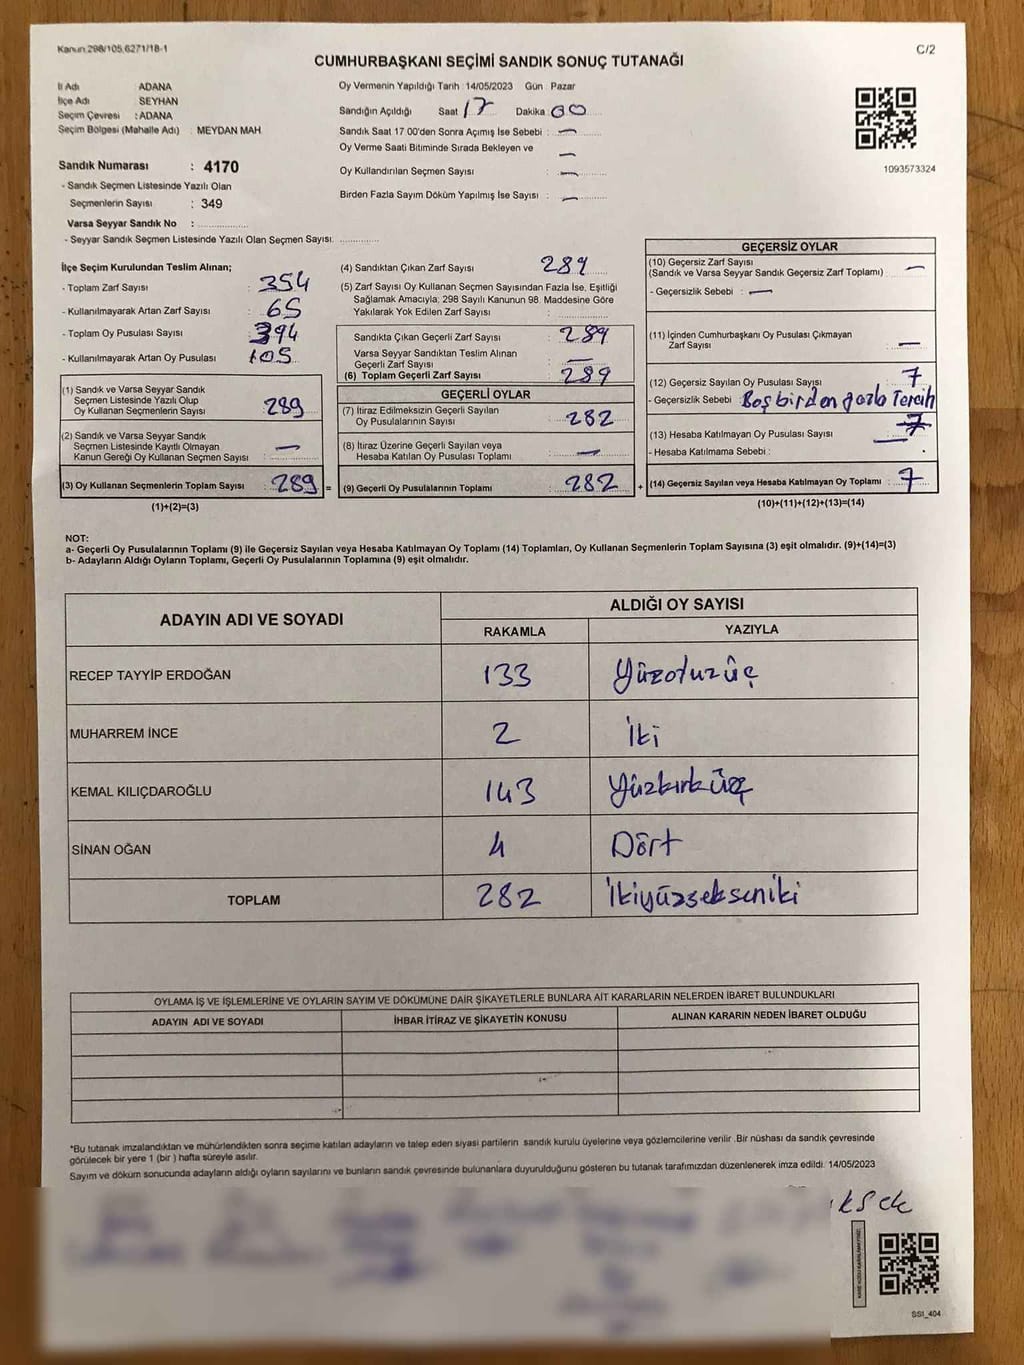 Kanun 298/105,6271/18-1
C/2
CUMHURBAŞKANI SEÇİMİ SANDIK SONUÇ TUTANAĞI
İl Adı ADANA
İlçe Adı SEYHAN
Seçim Çevresi : ADANA
Seçim Bölgesi (Mahalle Adı) : MEYDAN MAH
Sandık Numarası : 4170
- Sandık Seçmen Listesinde Yazılı Olan
Seçmenlerin Sayısı : 349
Varsa Seyyar Sandık No :
- Seyyar Sandık Seçmen Listesinde Yazılı Olan Seçmen Sayısı:
Oy Vermenin Yapıldığı Tarih 14/05/2023 Gün Pazar
Sandığın Açıldığı Saat 17 Dakika 00
Sandık Saat 17.00'den Sonra Açımış İse Sebebi : —
Oy Verme Saati Bitiminde Sırada Bekleyen ve —
Oy Kullandırılan Seçmen Sayısı : —
Birden Fazla Sayım Döküm Yapılmış İse Sayısı : —
1093573324
İlçe Seçim Kurulundan Teslim Alınan;
- Toplam Zarf Sayısı : 354
- Kullanılmayarak Artan Zarf Sayısı : 65
- Toplam Oy Pusulası Sayısı : 394
- Kullanılmayarak Artan Oy Pusulası : 105
(1) Sandık ve Varsa Seyyar Sandık
Seçmen Listesinde Yazılı Olup
Oy Kullanan Seçmenlerin Sayısı : 289
(2) Sandık ve Varsa Seyyar Sandık
Seçmen Listesinde Kayıtlı Olmayan
Kanun Gereği Oy Kullanan Seçmen Sayısı : —
(3) Oy Kullanan Seçmenlerin Toplam Sayısı : 289 =
(1)+(2)=(3)
(4) Sandıktan Çıkan Zarf Sayısı 289
(5) Zarf Sayısı Oy Kullanan Seçmen Sayısından Fazla İse, Eşitliği
Sağlamak Amacıyla; 298 Sayılı Kanunun 98. Maddesine Göre
Yakılarak Yok Edilen Zarf Sayısı :
Sandıkta Çıkan Geçerli Zarf Sayısı : 289
Varsa Seyyar Sandıktan Teslim Alınan
Geçerli Zarf Sayısı : —
(6) Toplam Geçerli Zarf Sayısı : 289
GEÇERLİ OYLAR
(7) İtiraz Edilmeksizin Geçerli Sayılan
Oy Pusulalarının Sayısı : 282
(8) İtiraz Üzerine Geçerli Sayılan veya
Hesaba Katılan Oy Pusulası Toplamı : —
(9) Geçerli Oy Pusulalarının Toplamı : 282 +
GEÇERSİZ OYLAR
(10) Geçersiz Zarf Sayısı
(Sandık ve Varsa Seyyar Sandık Geçersiz Zarf Toplamı) : —
- Geçersizlik Sebebi : —
(11) İçinden Cumhurbaşkanı Oy Pusulası Çıkmayan
Zarf Sayısı : —
(12) Geçersiz Sayılan Oy Pusulası Sayısı : 7
- Geçersizlik Sebebi : Boş birden fazla Tercih
(13) Hesaba Katılmayan Oy Pusulası Sayısı : — 7
- Hesaba Katılmama Sebebi :
(14) Geçersiz Sayılan veya Hesaba Katılmayan Oy Toplamı : 7
(10)+(11)+(12)+(13)=(14)
NOT:
a- Geçerli Oy Pusulalarının Toplamı (9) ile Geçersiz Sayılan veya Hesaba Katılmayan Oy Toplamı (14) Toplamları, Oy Kullanan Seçmenlerin Toplam Sayısına (3) eşit olmalıdır. (9)+(14)=(3)
b- Adayların Aldığı Oyların Toplamı, Geçerli Oy Pusulalarının Toplamına (9) eşit olmalıdır.
ADAYIN ADI VE SOYADI
ALDIĞI OY SAYISI
RAKAMLA YAZIYLA
RECEP TAYYİP ERDOĞAN 133 Yüzotuzüç
MUHARREM İNCE 2 İki
KEMAL KILIÇDAROĞLU 143 Yüzkırküç
SİNAN OĞAN 4 Dört
TOPLAM 282 İkiyüzsekseniki
OYLAMA İŞ VE İŞLEMLERİNE VE OYLARIN SAYIM VE DÖKÜMÜNE DAİR ŞİKAYETLERLE BUNLARA AİT KARARLARIN NELERDEN İBARET BULUNDUKLARI
ADAYIN ADI VE SOYADI İHBAR İTİRAZ VE ŞİKAYETİN KONUSU ALINAN KARARIN NEDEN İBARET OLDUĞU
*Bu tutanak imzalandıktan ve mühürlendikten sonra seçime katılan adayların ve talep eden siyasi partilerin sandık kurulu üyelerine veya gözlemcilerine verilir .Bir nüshası da sandık çevresinde
görülecek bir yere 1 (bir ) hafta süreyle asılır.
Sayım ve döküm sonucunda adayların aldığı oyların sayılarını ve bunların sandık çevresinde bulunanlara duyurulduğunu gösteren bu tutanak tarafımızdan düzenlenerek imza edildi. 14/05/2023
SS1_404